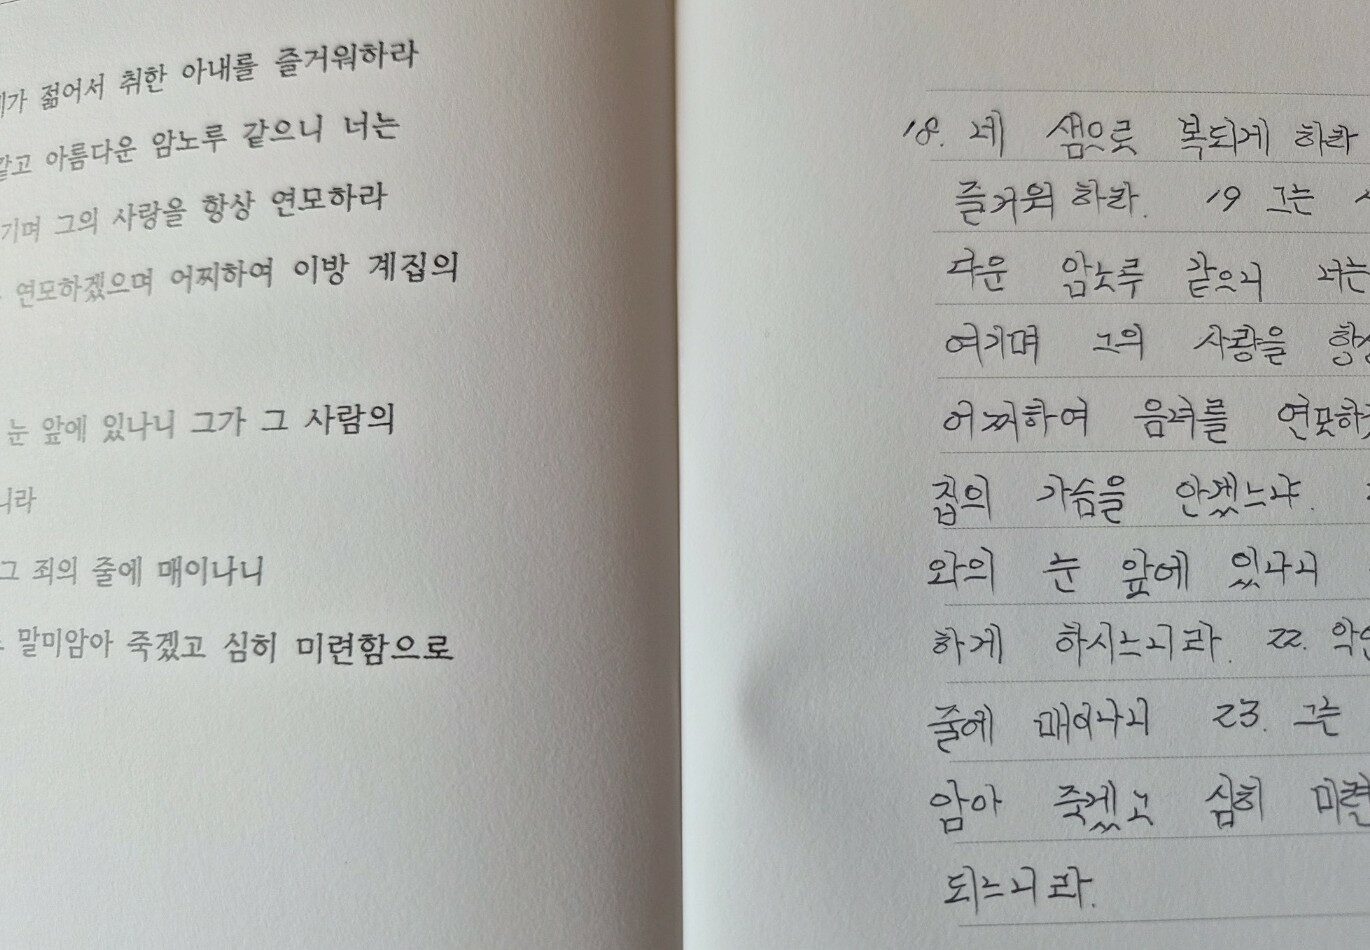 젊어서 취한 아내를 즐거워하라
아름다운 암노루 같으니 너는
그의 사랑을 항상 연모하라
연모하겠으며 어찌하여 이방 계집의
눈 앞에 있나니 그가 그 사람의
니라
그 죄의 줄에 매이나니
말미암아 죽겠고 심히 미련함으로
18. 네 샘으로 복되게 하라
즐거워하라. 19 그는
다운 암노루 같으니 너는
여기며 그의 사랑을 항상
어찌하여 음녀를 연모하겠
집의 가슴을 안겠느냐.
와의 눈 앞에 있나니
하게 하시느니라. 22. 악인
줄에 매이나니 23. 그는
암아 죽겠고 심히 미련
되느니라.